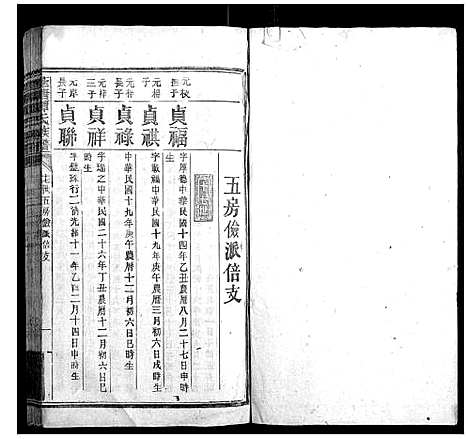 五房儉派倍支
元校
撫子
貞福
字厚德中華民國十四年乙丑農曆八月二十七日申時
生
元相
子
貞祺
中華民國十九年庚午農曆三月初六日戌時生
元梓
長子
貞祿
中華民國十九年庚午農曆十二月初六日巳時生
元梓
三子
貞祥
字瑞之中華民國二十六年丁丑農曆十二月初六日巳
時生
元岸
長子
貞聯
行二清光緒十一年乙酉二月十四日申時生
五房儉派倍支